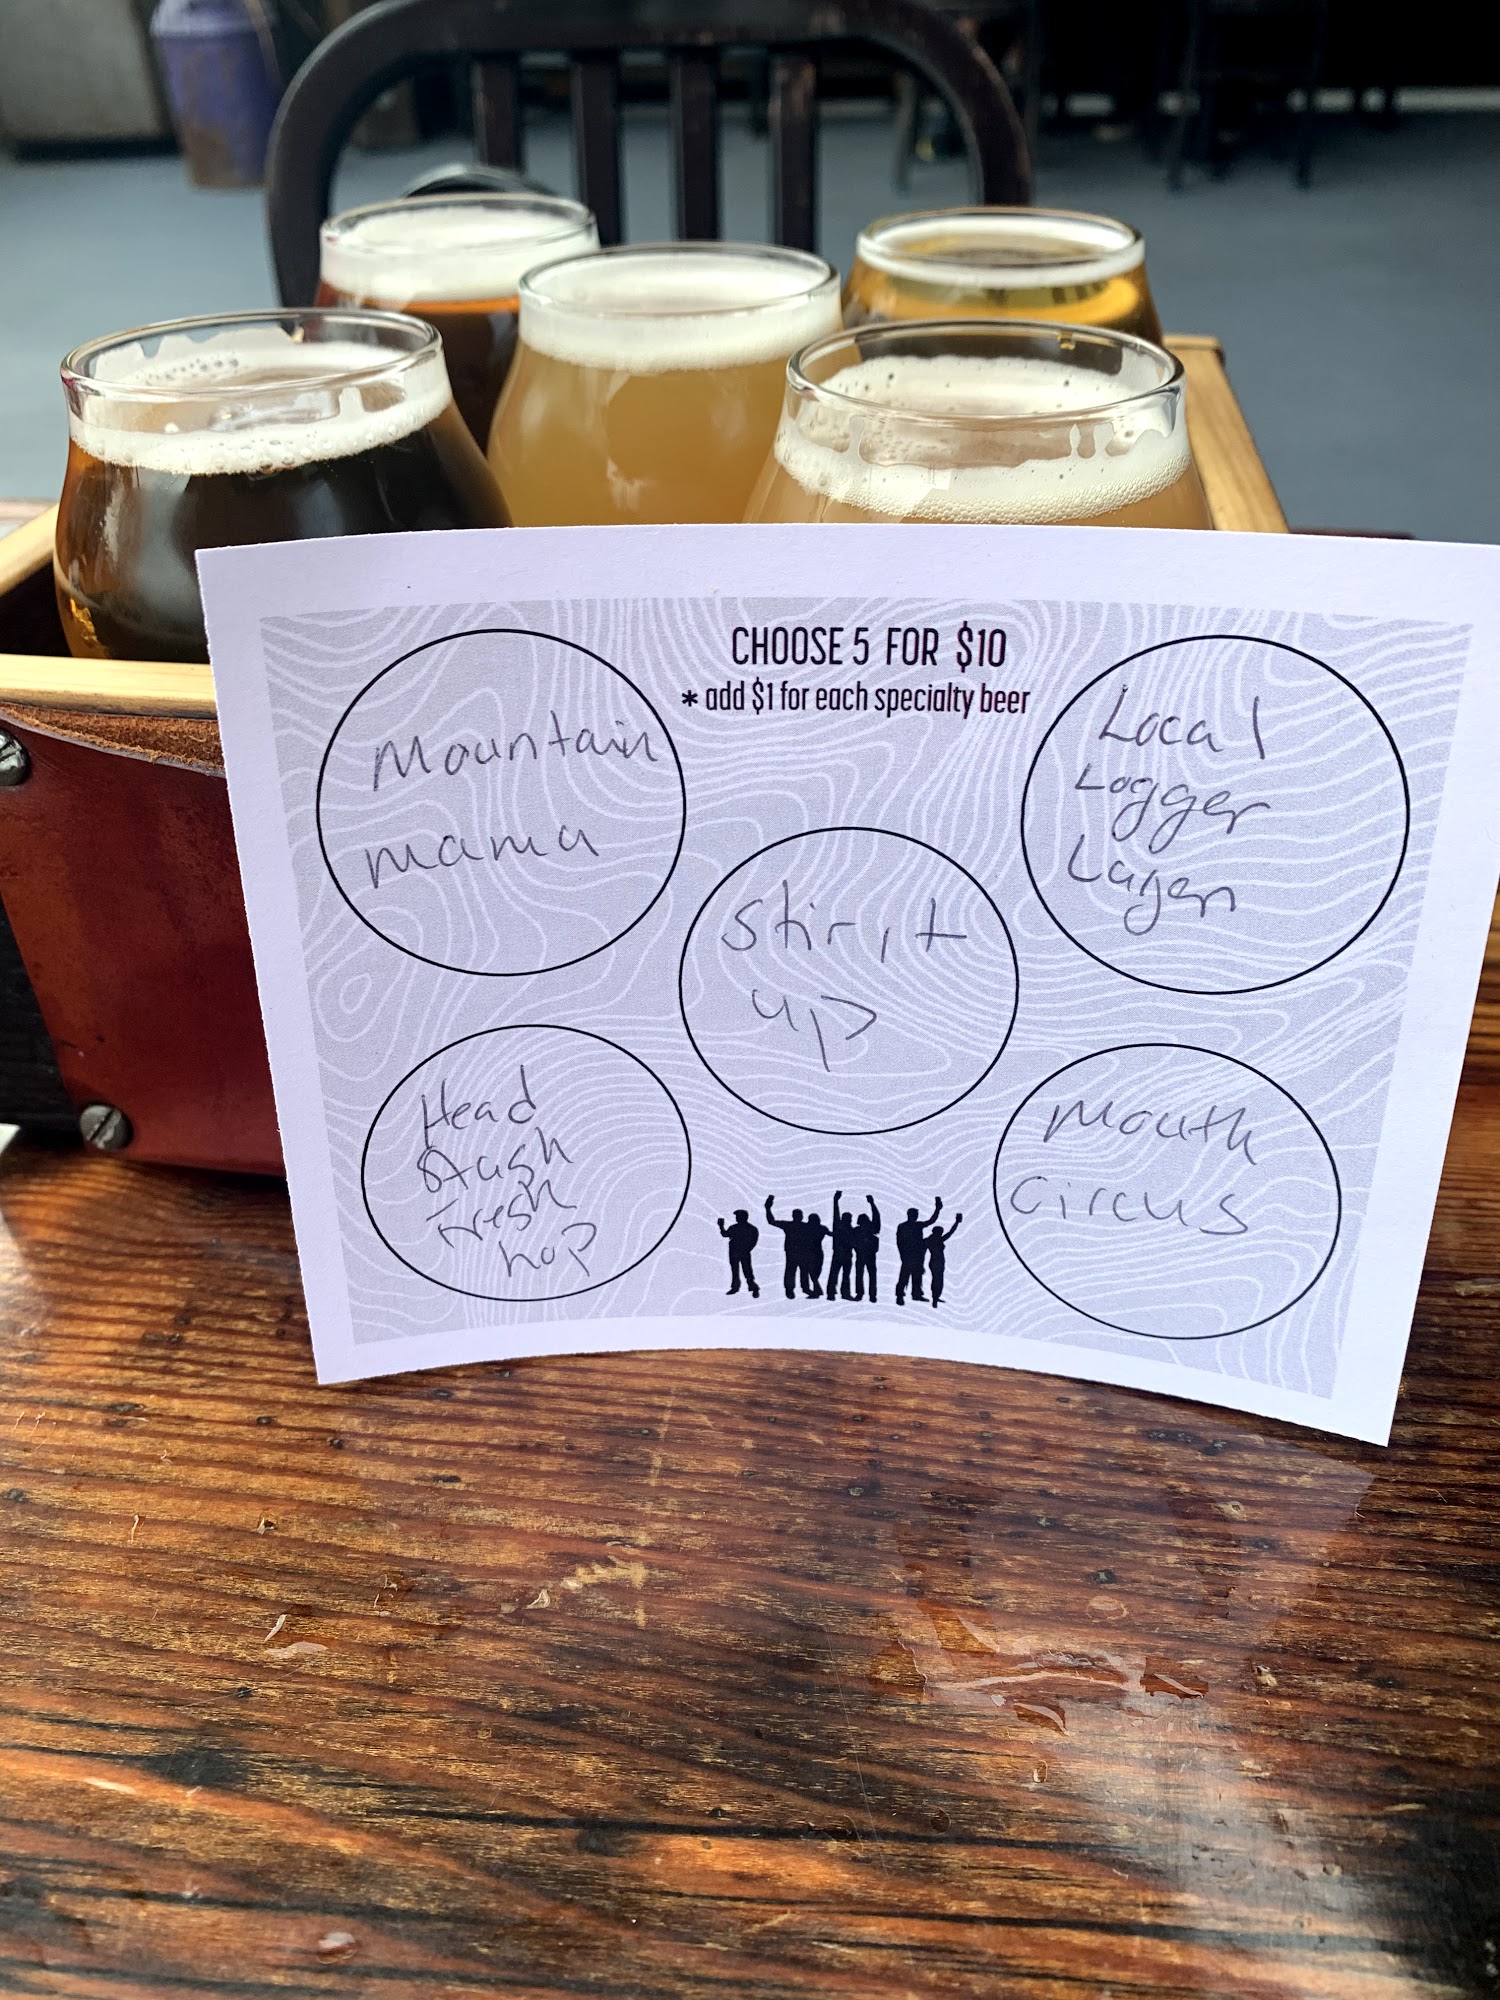 CHOOSE 5 FOR $10
* add $1 for each specialty beer
Mountain
mama
Local
Logger
Lager
Stir it
up
Head
Stash
Fresh
hop
Mouth
Circus